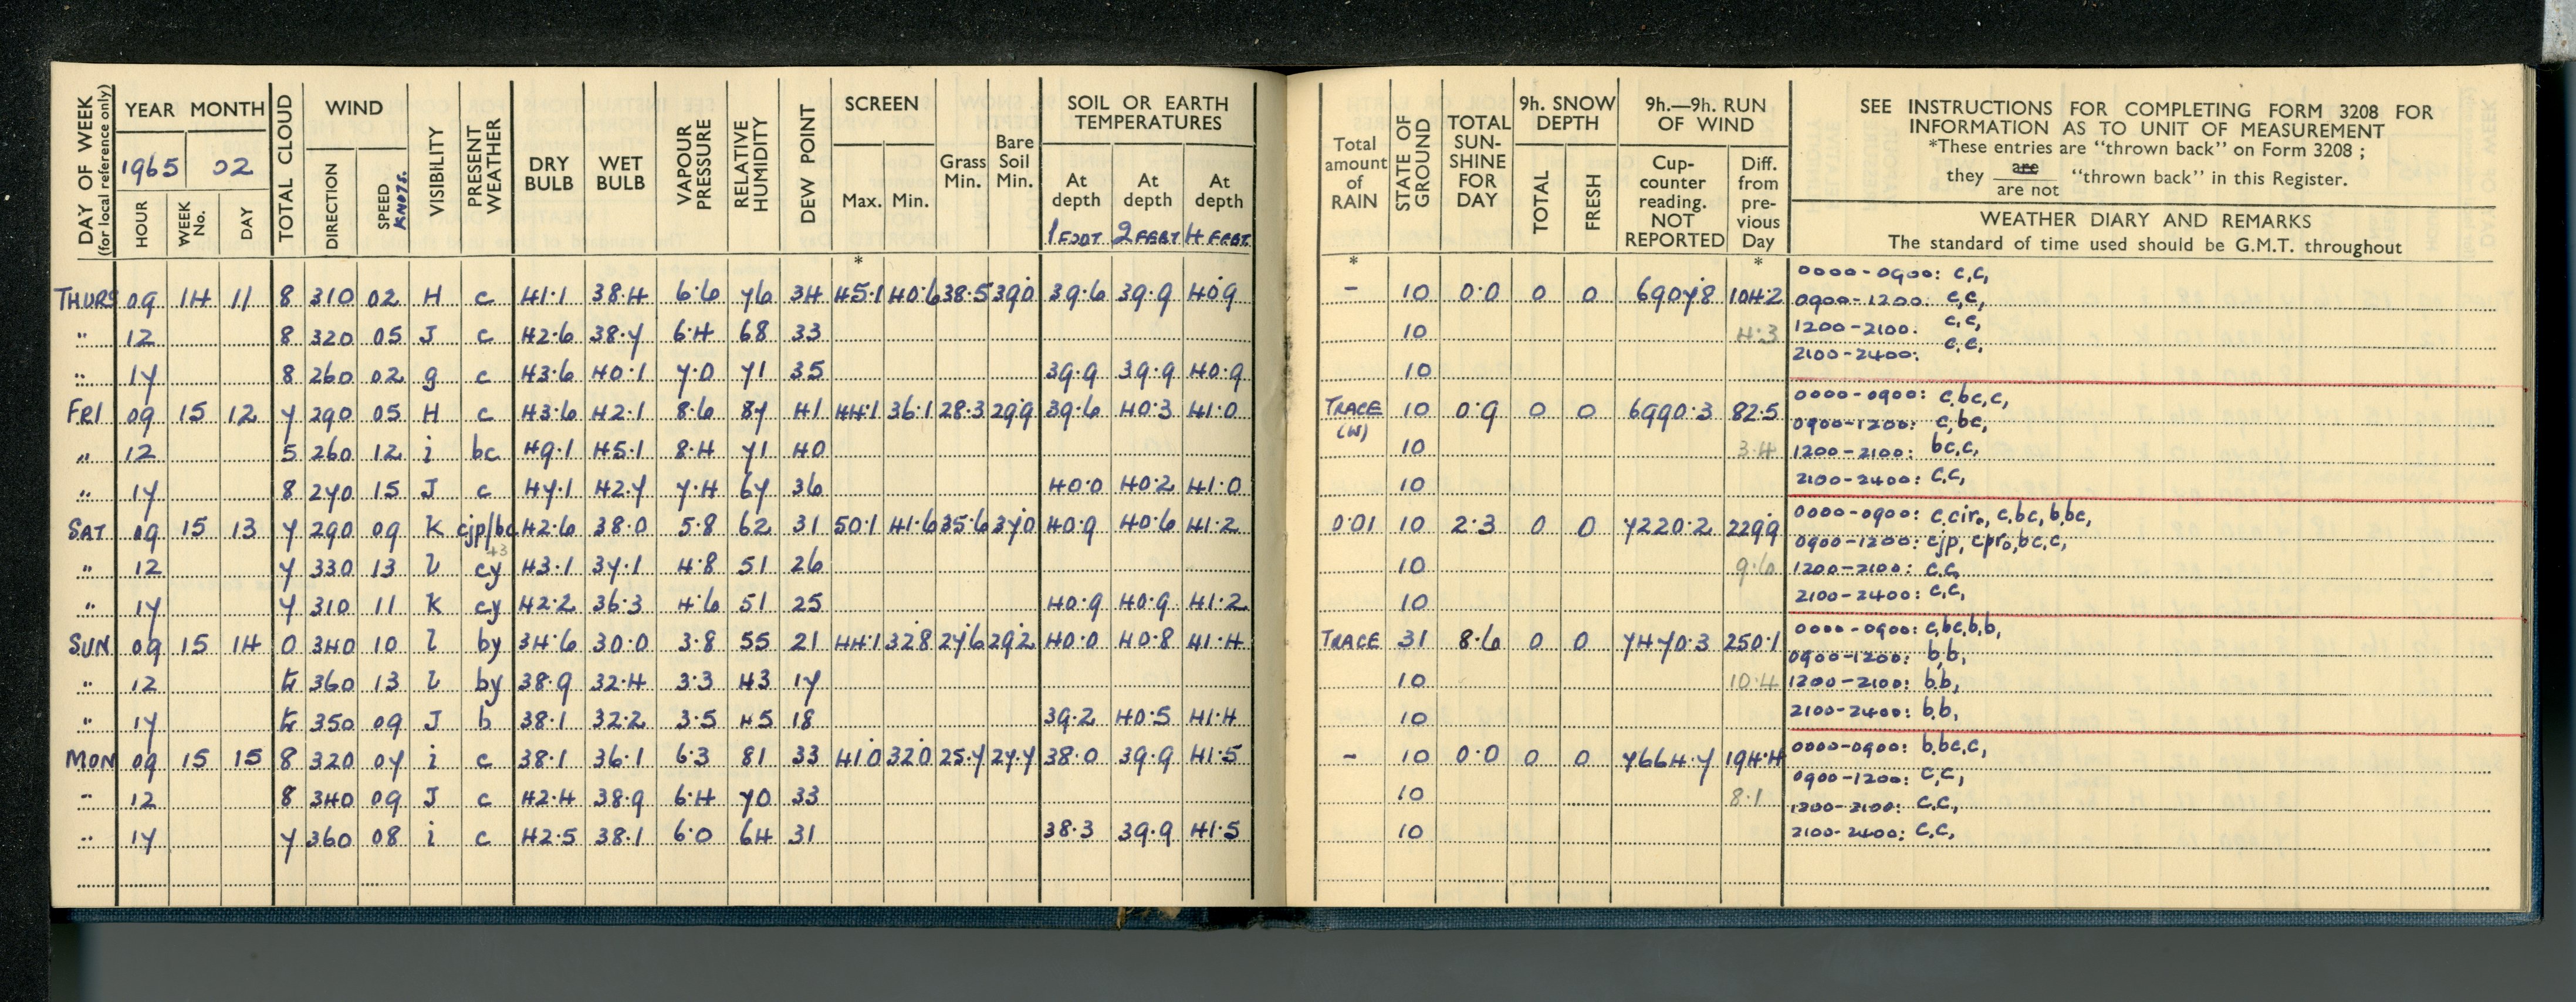 DAY OF WEEK (for local reference only)
YEAR MONTH
1965 02
HOUR WEEK No. DAY
TOTAL CLOUD
WIND
DIRECTION SPEED KNOTS.
VISIBILITY
PRESENT WEATHER
DRY BULB
WET BULB
VAPOUR PRESSURE
RELATIVE HUMIDITY
DEW POINT
SCREEN
Max. Min.
Grass Min.
Bare Soil Min.
SOIL OR EARTH TEMPERATURES
At depth At depth At depth
1 FOOT 2 FEET 4 FEET
*
THURS 09 14 11 8 310 02 H c 41.1 38.4 6.6 76 34 45.1 40.6 38.5 39.0 39.6 39.9 40.9
" 12 8 320 05 J c 42.6 38.7 6.4 68 33
" 17 8 260 02 g c 43.6 40.1 7.0 71 35 39.9 39.9 40.9
FRI 09 15 12 7 290 05 H c 43.6 42.1 8.6 87 41 44.1 36.1 28.3 29.9 39.6 40.3 41.0
" 12 5 260 12 i bc 49.1 45.1 8.4 71 40
" 17 8 270 15 J c 47.1 42.7 7.4 67 36 40.0 40.2 41.0
SAT 09 15 13 7 290 09 K cjp/bc 42.6 38.0 5.8 62 31 50.1 41.6 35.6 37.0 40.9 40.6 41.2
+3
" 12 7 330 13 l cy 43.1 37.1 4.8 51 26
" 17 7 310 11 K cy 42.2 36.3 4.6 51 25 40.9 40.9 41.2
SUN 09 15 14 0 340 10 l by 34.6 30.0 3.8 55 21 44.1 32.8 27.6 29.2 40.0 40.8 41.4
" 12 tr 360 13 l by 38.9 32.4 3.3 43 17
" 17 tr 350 09 J b 38.1 32.2 3.5 45 18 39.2 40.5 41.4
MON 09 15 15 8 320 07 i c 38.1 36.1 6.3 81 33 41.0 32.0 25.7 27.7 38.0 39.9 41.5
" 12 8 340 09 J c 42.4 38.9 6.4 70 33
" 17 7 360 08 i c 42.5 38.1 6.0 64 31 38.3 39.9 41.5
Total amount of RAIN
STATE OF GROUND
TOTAL SUN-SHINE FOR DAY
9h. SNOW DEPTH
TOTAL FRESH
9h.—9h. RUN OF WIND
Cup-counter reading. NOT REPORTED
Diff. from pre-vious Day
SEE INSTRUCTIONS FOR COMPLETING FORM 3208 FOR
INFORMATION AS TO UNIT OF MEASUREMENT
*These entries are "thrown back" on Form 3208 ;
they are / are not "thrown back" in this Register.
WEATHER DIARY AND REMARKS
The standard of time used should be G.M.T. throughout
* *
- 10 0.0 0 0 6907.8 104.2
0000-0900: c,c,
0900-1200: c,c,
10 4.3
1200-2100: c,c,
10
2100-2400: c,c,
TRACE (W) 10 0.9 0 0 6990.3 82.5
0000-0900: c,bc,c,
0900-1200: c,bc,
10 3.4
1200-2100: bc,c,
10
2100-2400: c,c,
0.01 10 2.3 0 0 7220.2 229.9
0000-0900: c,cir₀, c,bc, b,bc,
0900-1200: cjp, cpr₀,bc,c,
10 9.6
1200-2100: c,c,
10
2100-2400: c,c,
TRACE 31 8.6 0 0 7470.3 250.1
0000-0900: c,bc,b,b,
0900-1200: b,b,
10 10.4
1200-2100: b,b,
10
2100-2400: b,b,
- 10 0.0 0 0 7664.7 194.4
0000-0900: b,bc,c,
0900-1200: c,c,
10 8.1
1200-2100: c,c,
10
2100-2400: c,c,